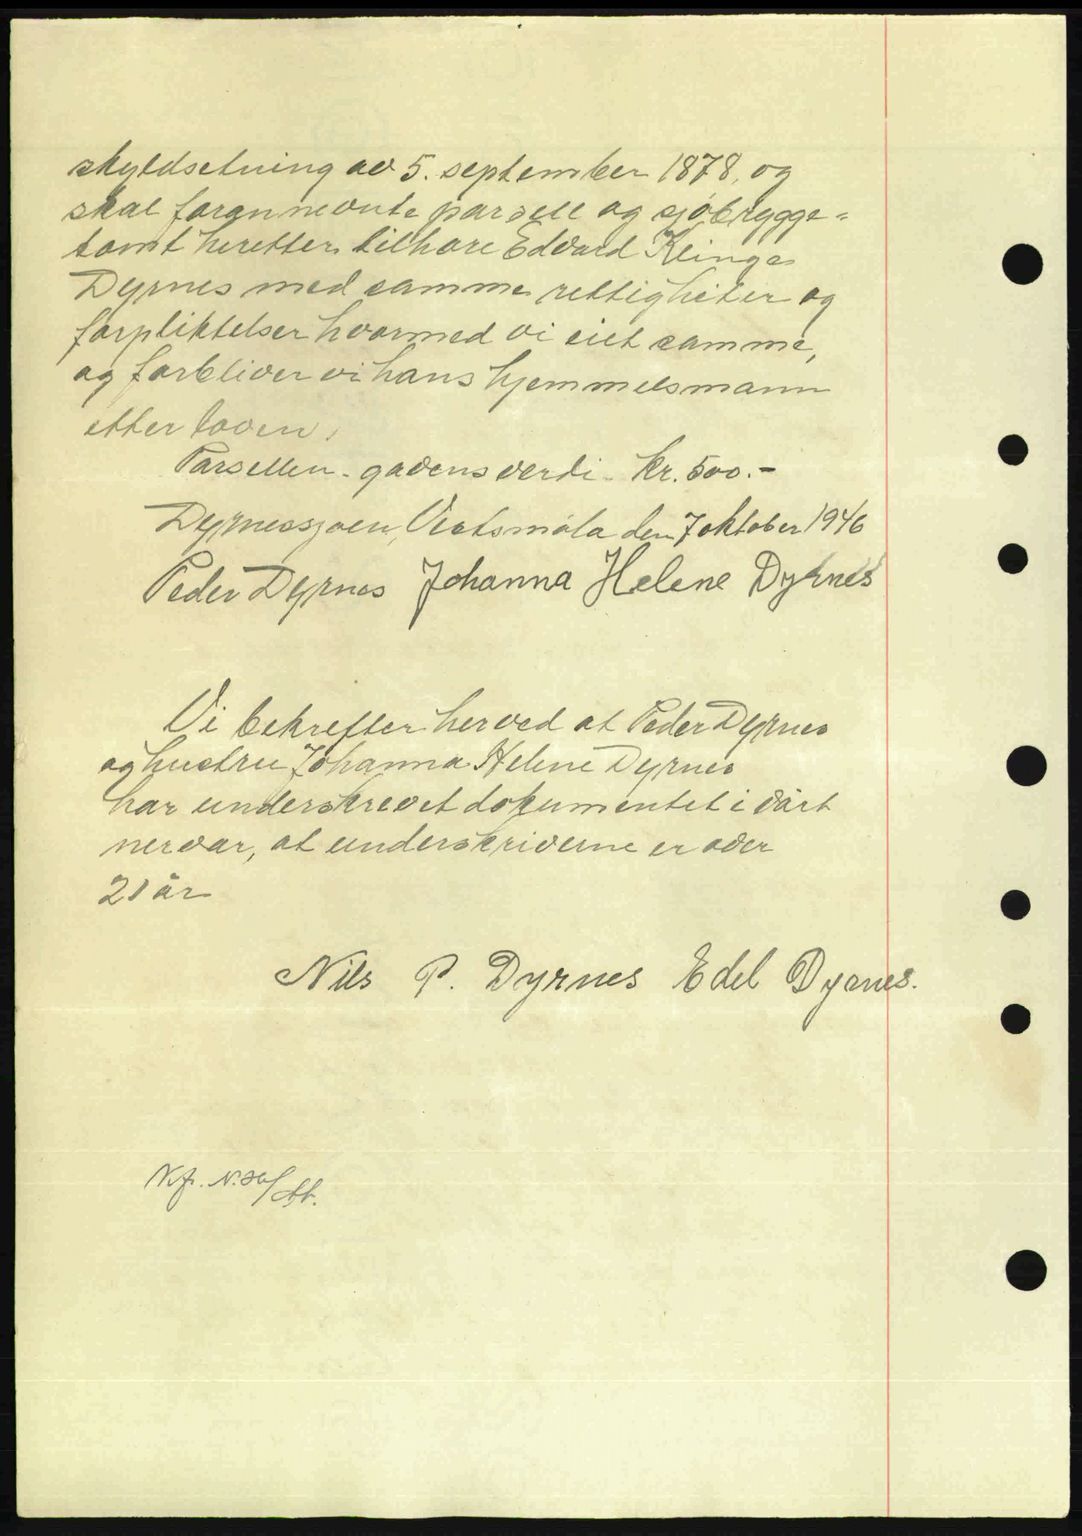 skyldsetning av 5. september 1878, og
skal forannevnte parsell og sjøbrygge-
tomt heretter tilhøre Edvard Klinge
Dyrnes med samme rettigheter og
forpliktelser hvormed vi eiet samme,
og forbliver vi hans hjemmelsmann
etter loven.
Parsellen - gavens verdi - kr. 500.-
Dyrnessjøen, den 7 oktober 1946
Peder Dyrnes Johanna Helene Dyrnes
Vi bekrefter herved at Peder Dyrnes
og hustru Johanna Helene Dyrnes
har underskrevet dokumentet i vårt
nervær, at underskriverne er over
21 år
Nils P. Dyrnes Edel Dyrnes.